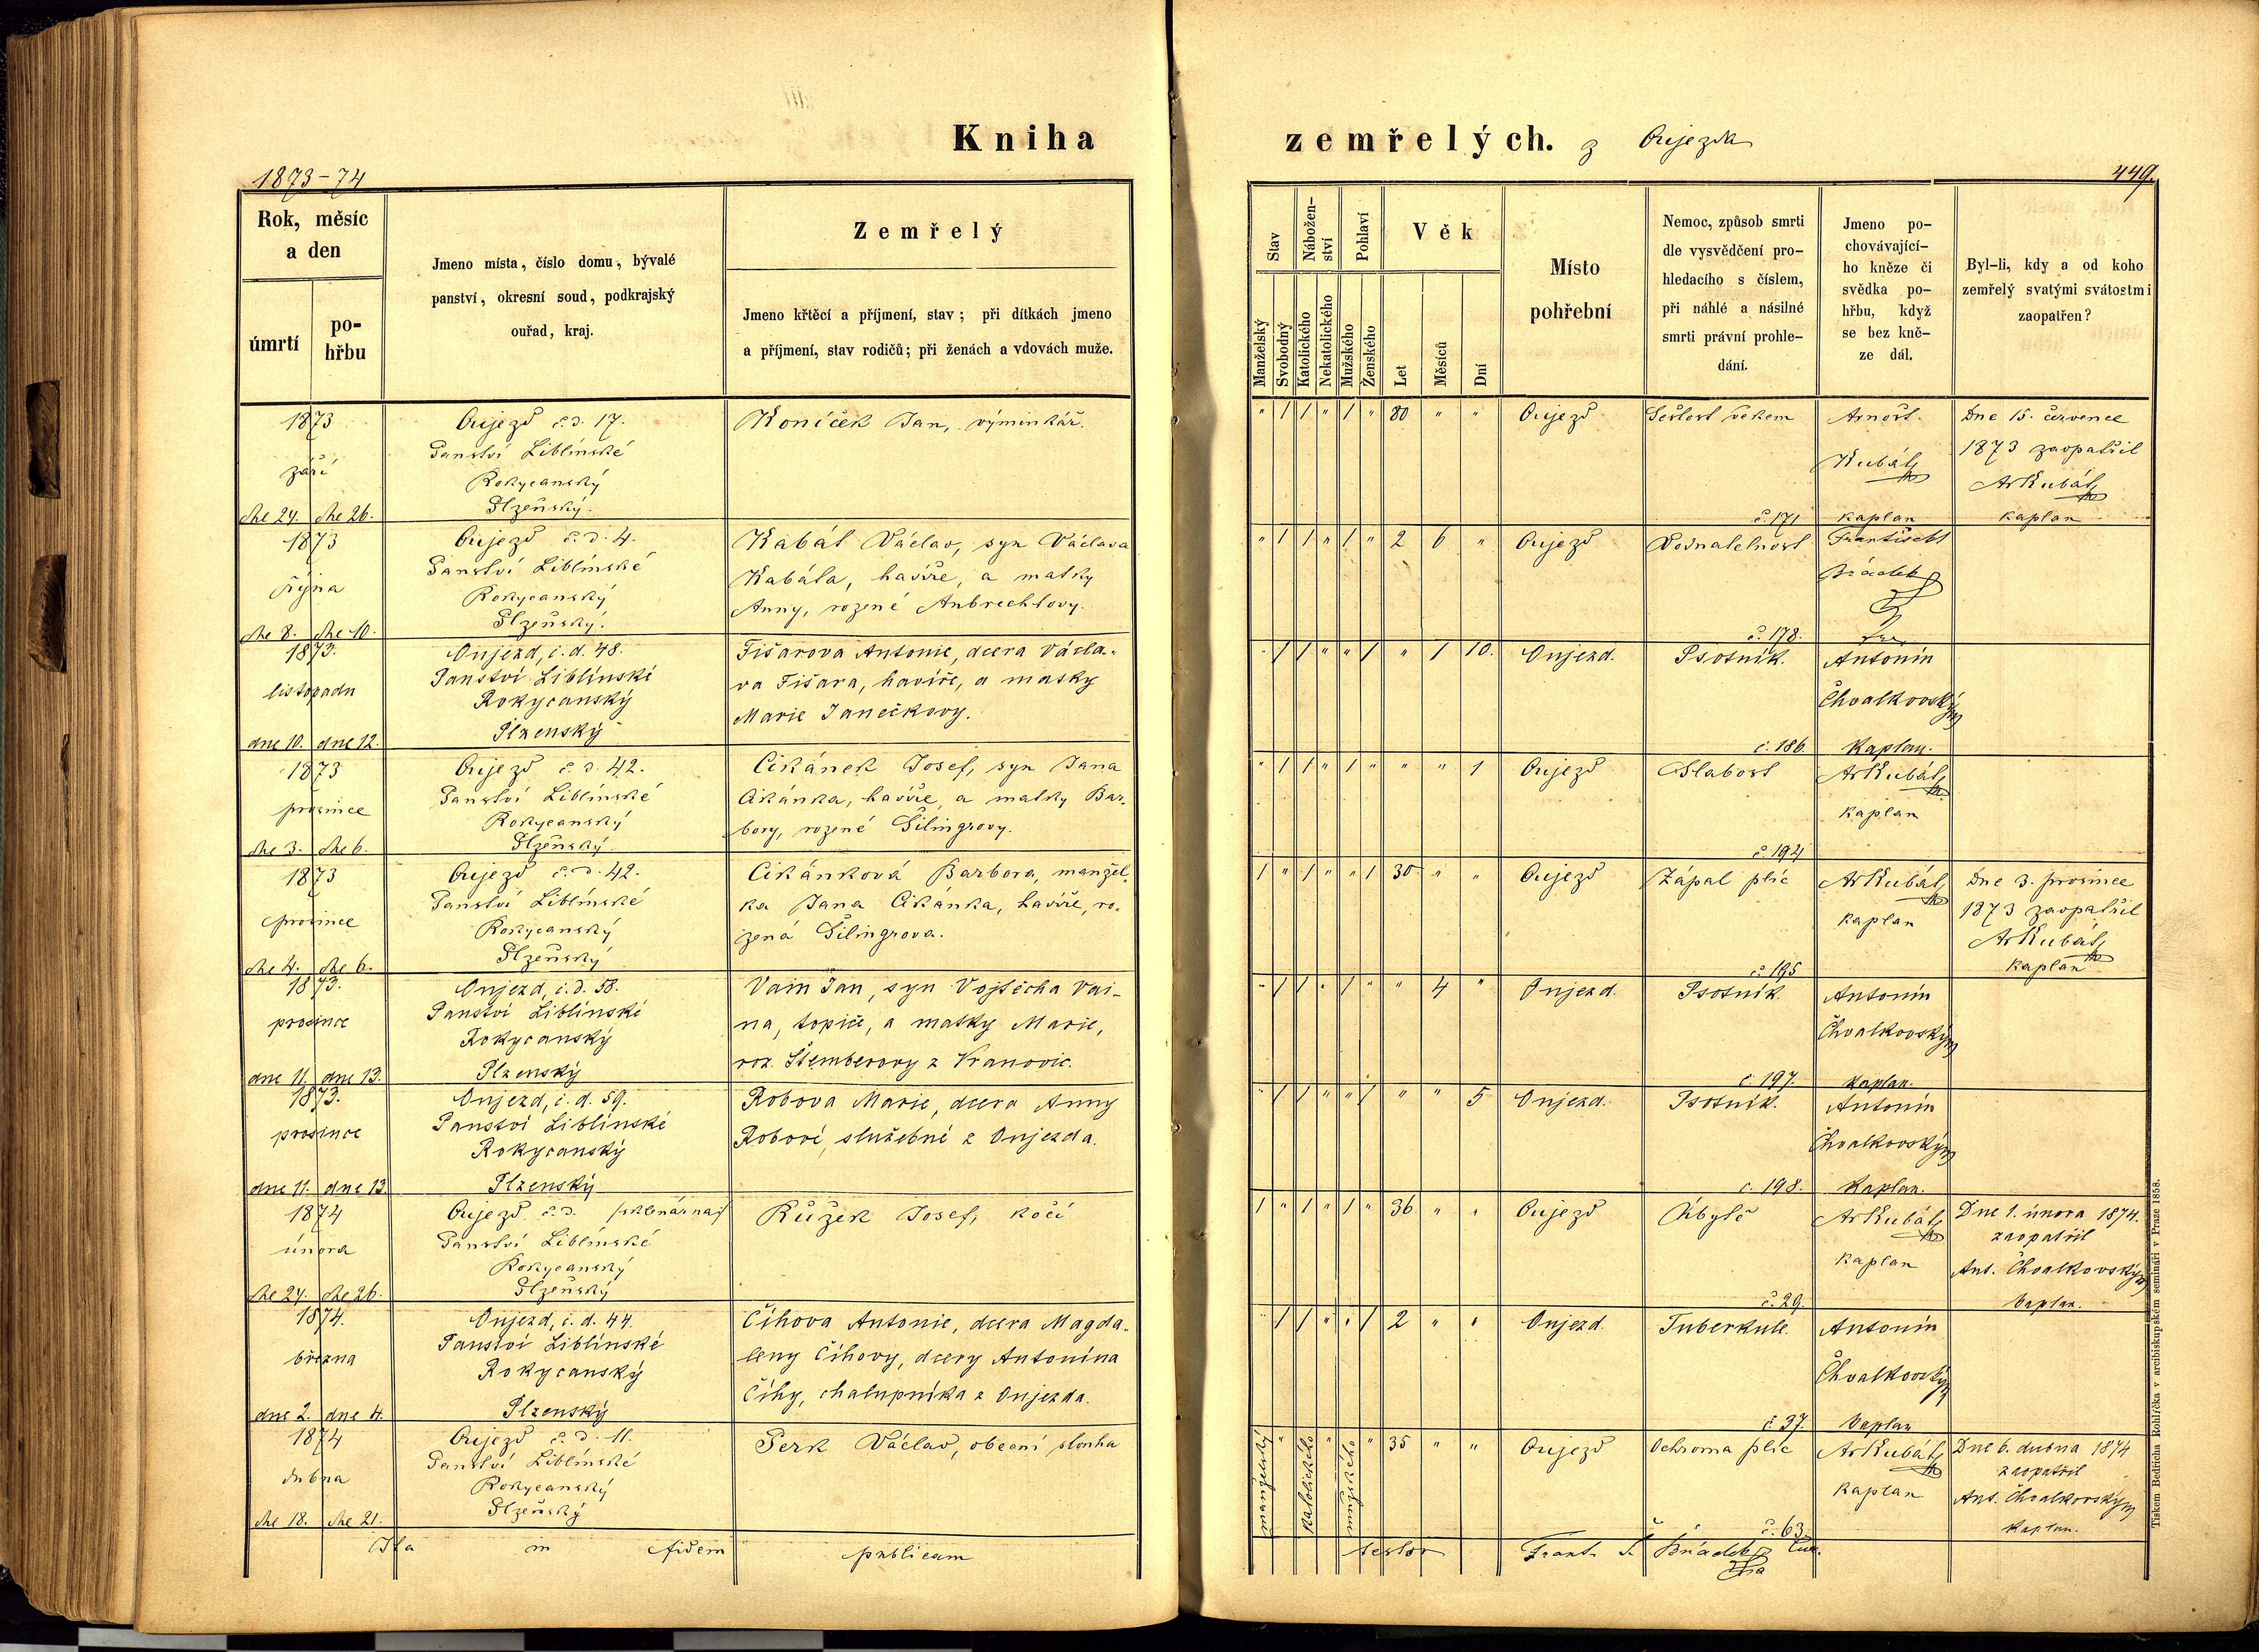 Kniha zemřelých. z Oujezda
1873-74
449.
Rok, měsíc
a den
úmrtí
po-
hřbu
Jmeno místa, číslo domu, bývalé
panství, okresní soud, podkrajský
ouřad, kraj.
Zemřelý
Jmeno křtěcí a příjmení, stav; při dítkách jmeno
a příjmení, stav rodičů; při ženách a vdovách muže.
Stav
Manželský
Svobodný
Nábožen-
ství
Katolického
Nekatolického
Pohlaví
Mužského
Ženského
Věk
Let
Měsíců
Dní
Místo
pohřební
Nemoc, způsob smrti
dle vysvědčení pro-
hledacího s číslem,
při náhlé a násilné
smrti právní prohle-
dání.
Jmeno po-
chovávající-
ho kněze či
svědka po-
hřbu, když
se bez kně-
ze dál.
Byl-li, kdy a od koho
zemřelý svatými svátostmi
zaopatřen?
1873
září
dne 24. dne 26.
Oujezd č. d. 17.
Panství Liblínské
Rokycanský
Plzeňský.
Koníček Jan, výminkář.
" 1 1 " 1 " 80 " "
Oujezd
Sešlost věkem
č. 171
Arnošt
Kubát
kaplan
Dne 15. července
1873 zaopatřil
ArKubát
kaplan
1873
října
dne 8. dne 10.
Oujezd č. d. 4.
Panství Liblínské
Rokycanský
Plzeňský.
Kabát Václav, syn Václava
Kabáta, havíře, a matky
Anny, rozené Aubrechtovy.
" 1 1 " 1 " 2 6 "
Oujezd
Vodnatelnost
č. 178.
František
Brádek
1873.
listopadu
dne 10. dne 12.
Oujezd, č. d. 48.
Panství Liblínské
Rokycanský
Plzenský
Fišarova Antonie, dcera Václa-
va Fišara, havíře, a matky
Marie Janečkovy.
" 1 1 " " 1 " 1 10.
Oujezd.
Psotník.
č. 186.
Antonín
Chvalkovský
Kaplan.
1873
prosince
dne 3. dne 6.
Oujezd č. d. 42.
Panství Liblínské
Rokycanský
Plzeňský
Cikánek Josef, syn Jana
Cikánka, havíře, a matky Bar-
bory, rozené Šilingrovy.
" 1 1 " 1 " " " 1
Oujezd
Slabost
č. 194
ArKubát
kaplan
1873
prosince
dne 4. dne 6.
Oujezd č. d. 42.
Panství Liblínské
Rokycanský
Plzeňský
Cikánková Barbora, manžel-
ka Jana Cikánka, havíře, ro-
zená Šilingrova.
1 " 1 " " 1 30 " "
Oujezd
Zápal plic
č. 195
ArKubát
kaplan
Dne 3. prosince
1873 zaopatřil
ArKubát
kaplan
1873.
prosince
dne 11. dne 13.
Oujezd, č. d. 58.
Panství Liblínské
Rokycanský
Plzenský
Vain Jan, syn Vojtěcha Vai-
na, topiče, a matky Marie,
roz. Štemberovy z Vranovic.
" 1 1 " 1 " " 4 "
Oujezd.
Psotník.
č. 197.
Antonín
Chvalkovský
kaplan.
1873.
prosince
dne 11. dne 13.
Oujezd, č. d. 59.
Panství Liblínské
Rokycanský
Plzenský
Robova Marie, dcera Anny
Robové, služebné z Oujezda.
" 1 1 " " 1 " " 5
Oujezd.
Psotník.
č. 198.
Antonín
Chvalkovský
Kaplan.
1874
února
dne 24. dne 26.
Oujezd č. d. /sklenárna/
Panství Liblínské
Rokycanský
Plzeňský
Růžek Josef, kočí
1 " 1 " 1 " 36 " "
Oujezd
Úbytě
č. 29.
ArKubát
kaplan
Dne 1. února 1874.
zaopatřil
Ant. Chvalkovský
kaplan.
1874.
března
dne 2. dne 4.
Oujezd, č. d. 44.
Panství Liblínské
Rokycanský
Plzenský
Číhova Antonie, dcera Magda-
leny Číhovy, dcery Antonína
Číhy, chalupníka z Oujezda.
" 1 1 " " 1 2 " "
Oujezd.
Tuberkule.
č. 37.
Antonín
Chvalkovský
kaplan
1874
dubna
dne 18. dne 21.
Oujezd č. d. 11.
Panství Liblínské
Rokycanský
Plzeňský
Perk Václav, obecní sluha
manželský " katolického " mužského " 35 " "
Oujezd
Ochroma plic
č. 63
ArKubát
kaplan
Dne 6. dubna 1874
zaopatřil
Ant. Chvalkovský
Kaplan.
Ita in fidem publicam
testor Frant. Brádek
Tiskem Bedřicha Rohlíčka v arcibiskupském semináři v Praze 1858.